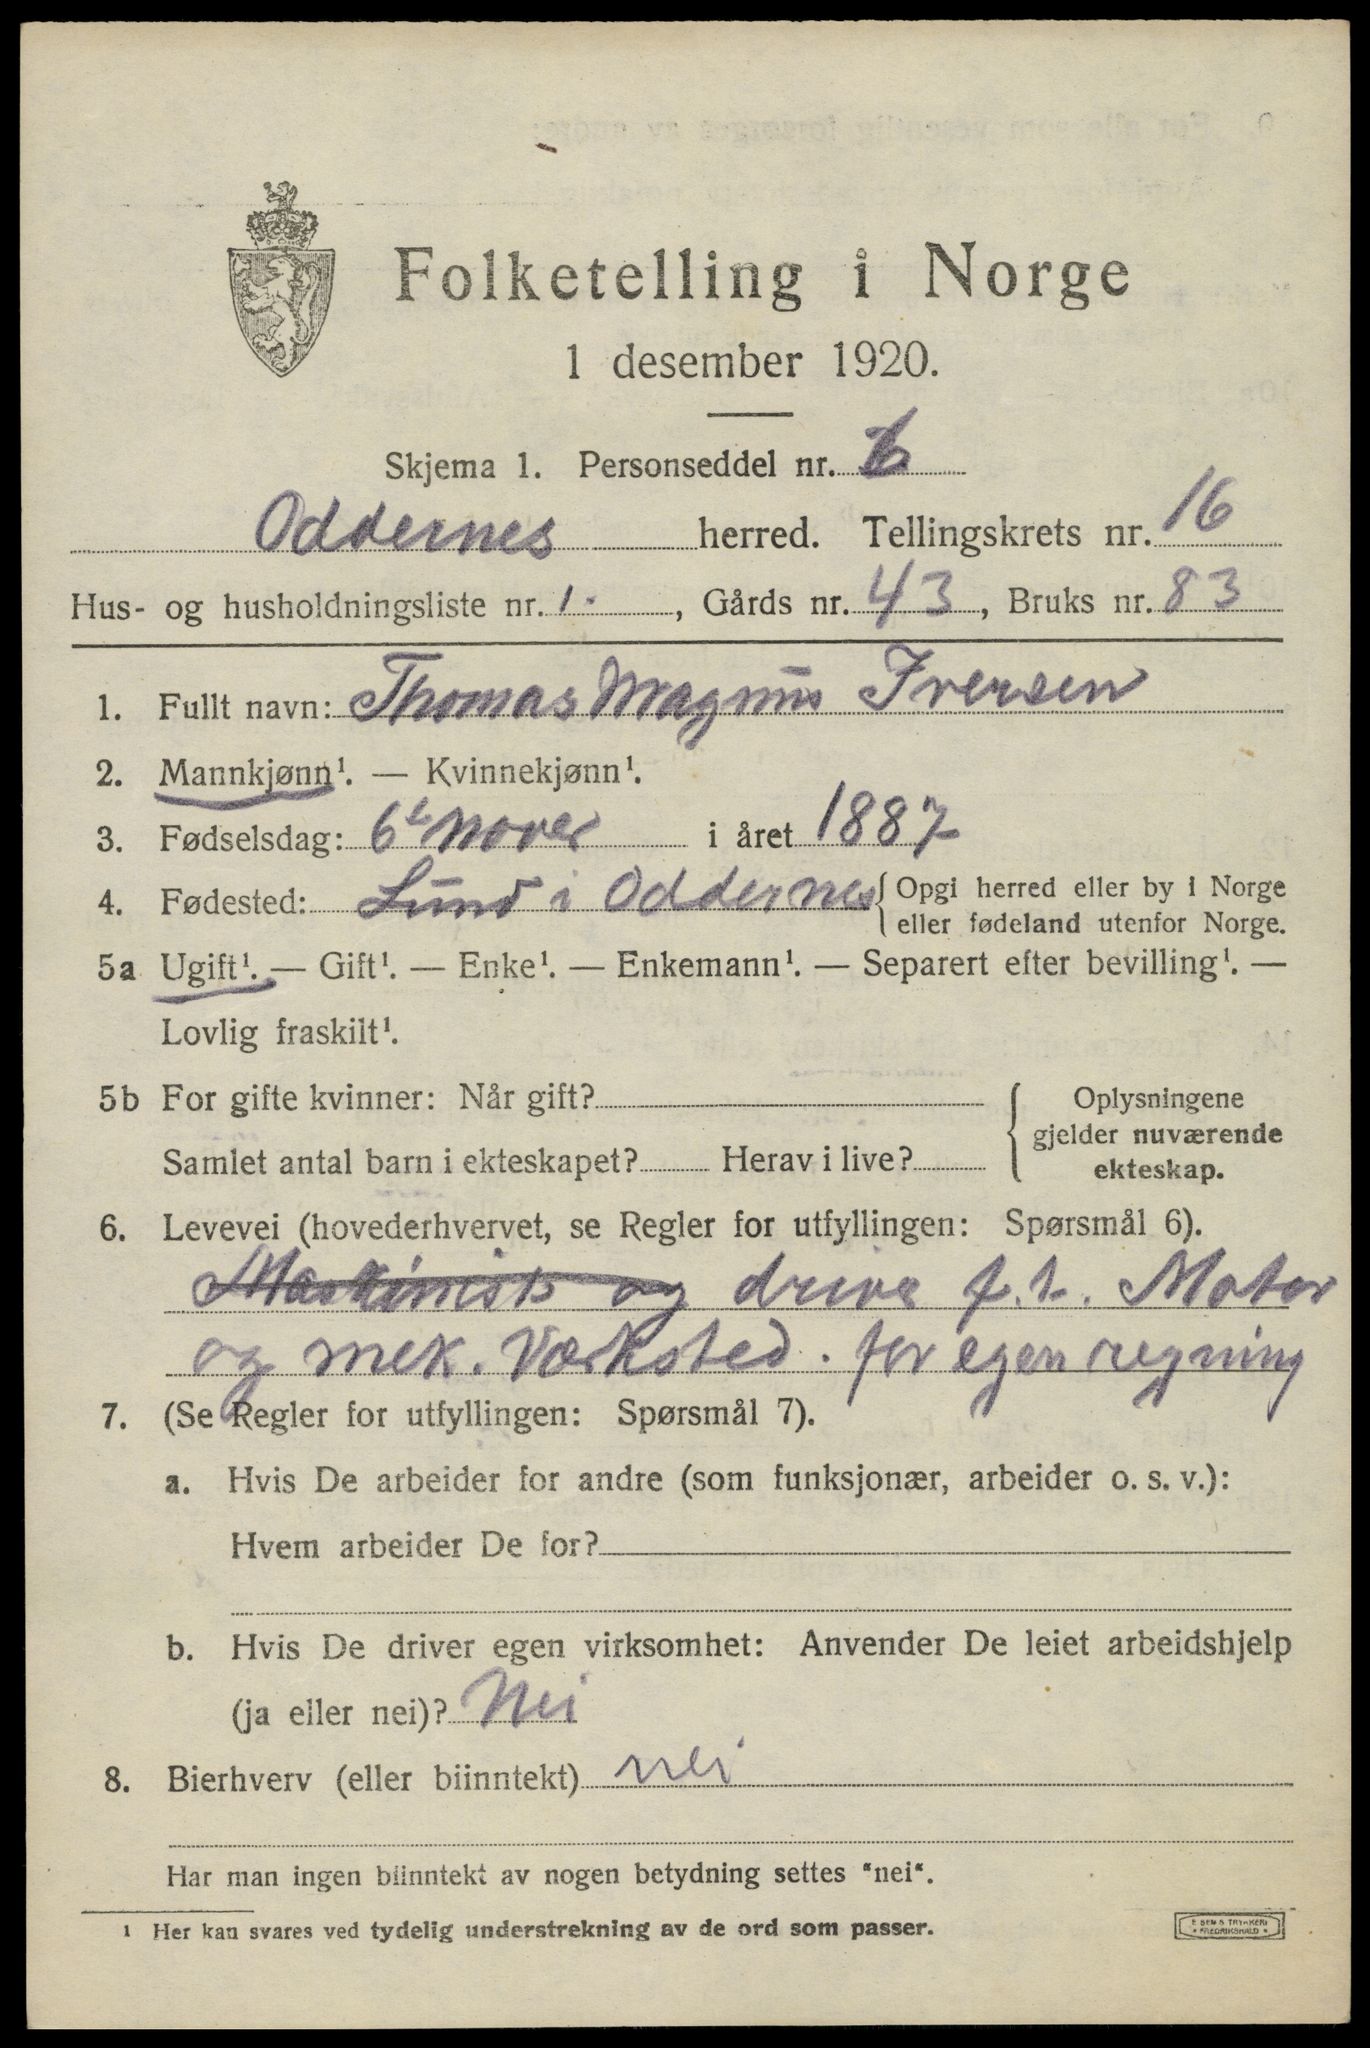 Folketelling i Norge
1 desember 1920.
Skjema 1. Personseddel nr. 6
Oddernes herred. Tellingskrets nr. 16
Hus- og husholdningsliste nr. 1. , Gårds nr. 43 , Bruks nr. 83
1. Fullt navn: Thomas Magnus Iversen
2. Mannkjønn¹. — Kvinnekjønn¹.
3. Fødselsdag: 6te Nover i året 1887
4. Fødested: Lund i Oddernes { Opgi herred eller by i Norge
eller fødeland utenfor Norge.
5a Ugift¹. — Gift¹. — Enke¹. — Enkemann¹. — Separert efter bevilling¹. —
Lovlig fraskilt¹.
5b For gifte kvinner: Når gift?
Samlet antal barn i ekteskapet? Herav i live?
{ Oplysningene
gjelder nuværende
ekteskap.
6. Levevei (hovederhvervet, se Regler for utfyllingen: Spørsmål 6).
Maskinist og drive f.t. Motor
og mek. Værksted. for egen regning
7. (Se Regler for utfyllingen: Spørsmål 7).
a. Hvis De arbeider for andre (som funksjonær, arbeider o. s. v.):
Hvem arbeider De for?
b. Hvis De driver egen virksomhet: Anvender De leiet arbeidshjelp
(ja eller nei)? Nei
8. Bierhverv (eller biinntekt) nei
Har man ingen biinntekt av nogen betydning settes "nei".
¹ Her kan svares ved tydelig understrekning av de ord som passer.